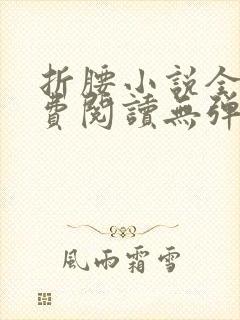 折腰小説全
費閱讀無彈
風雨霜雪